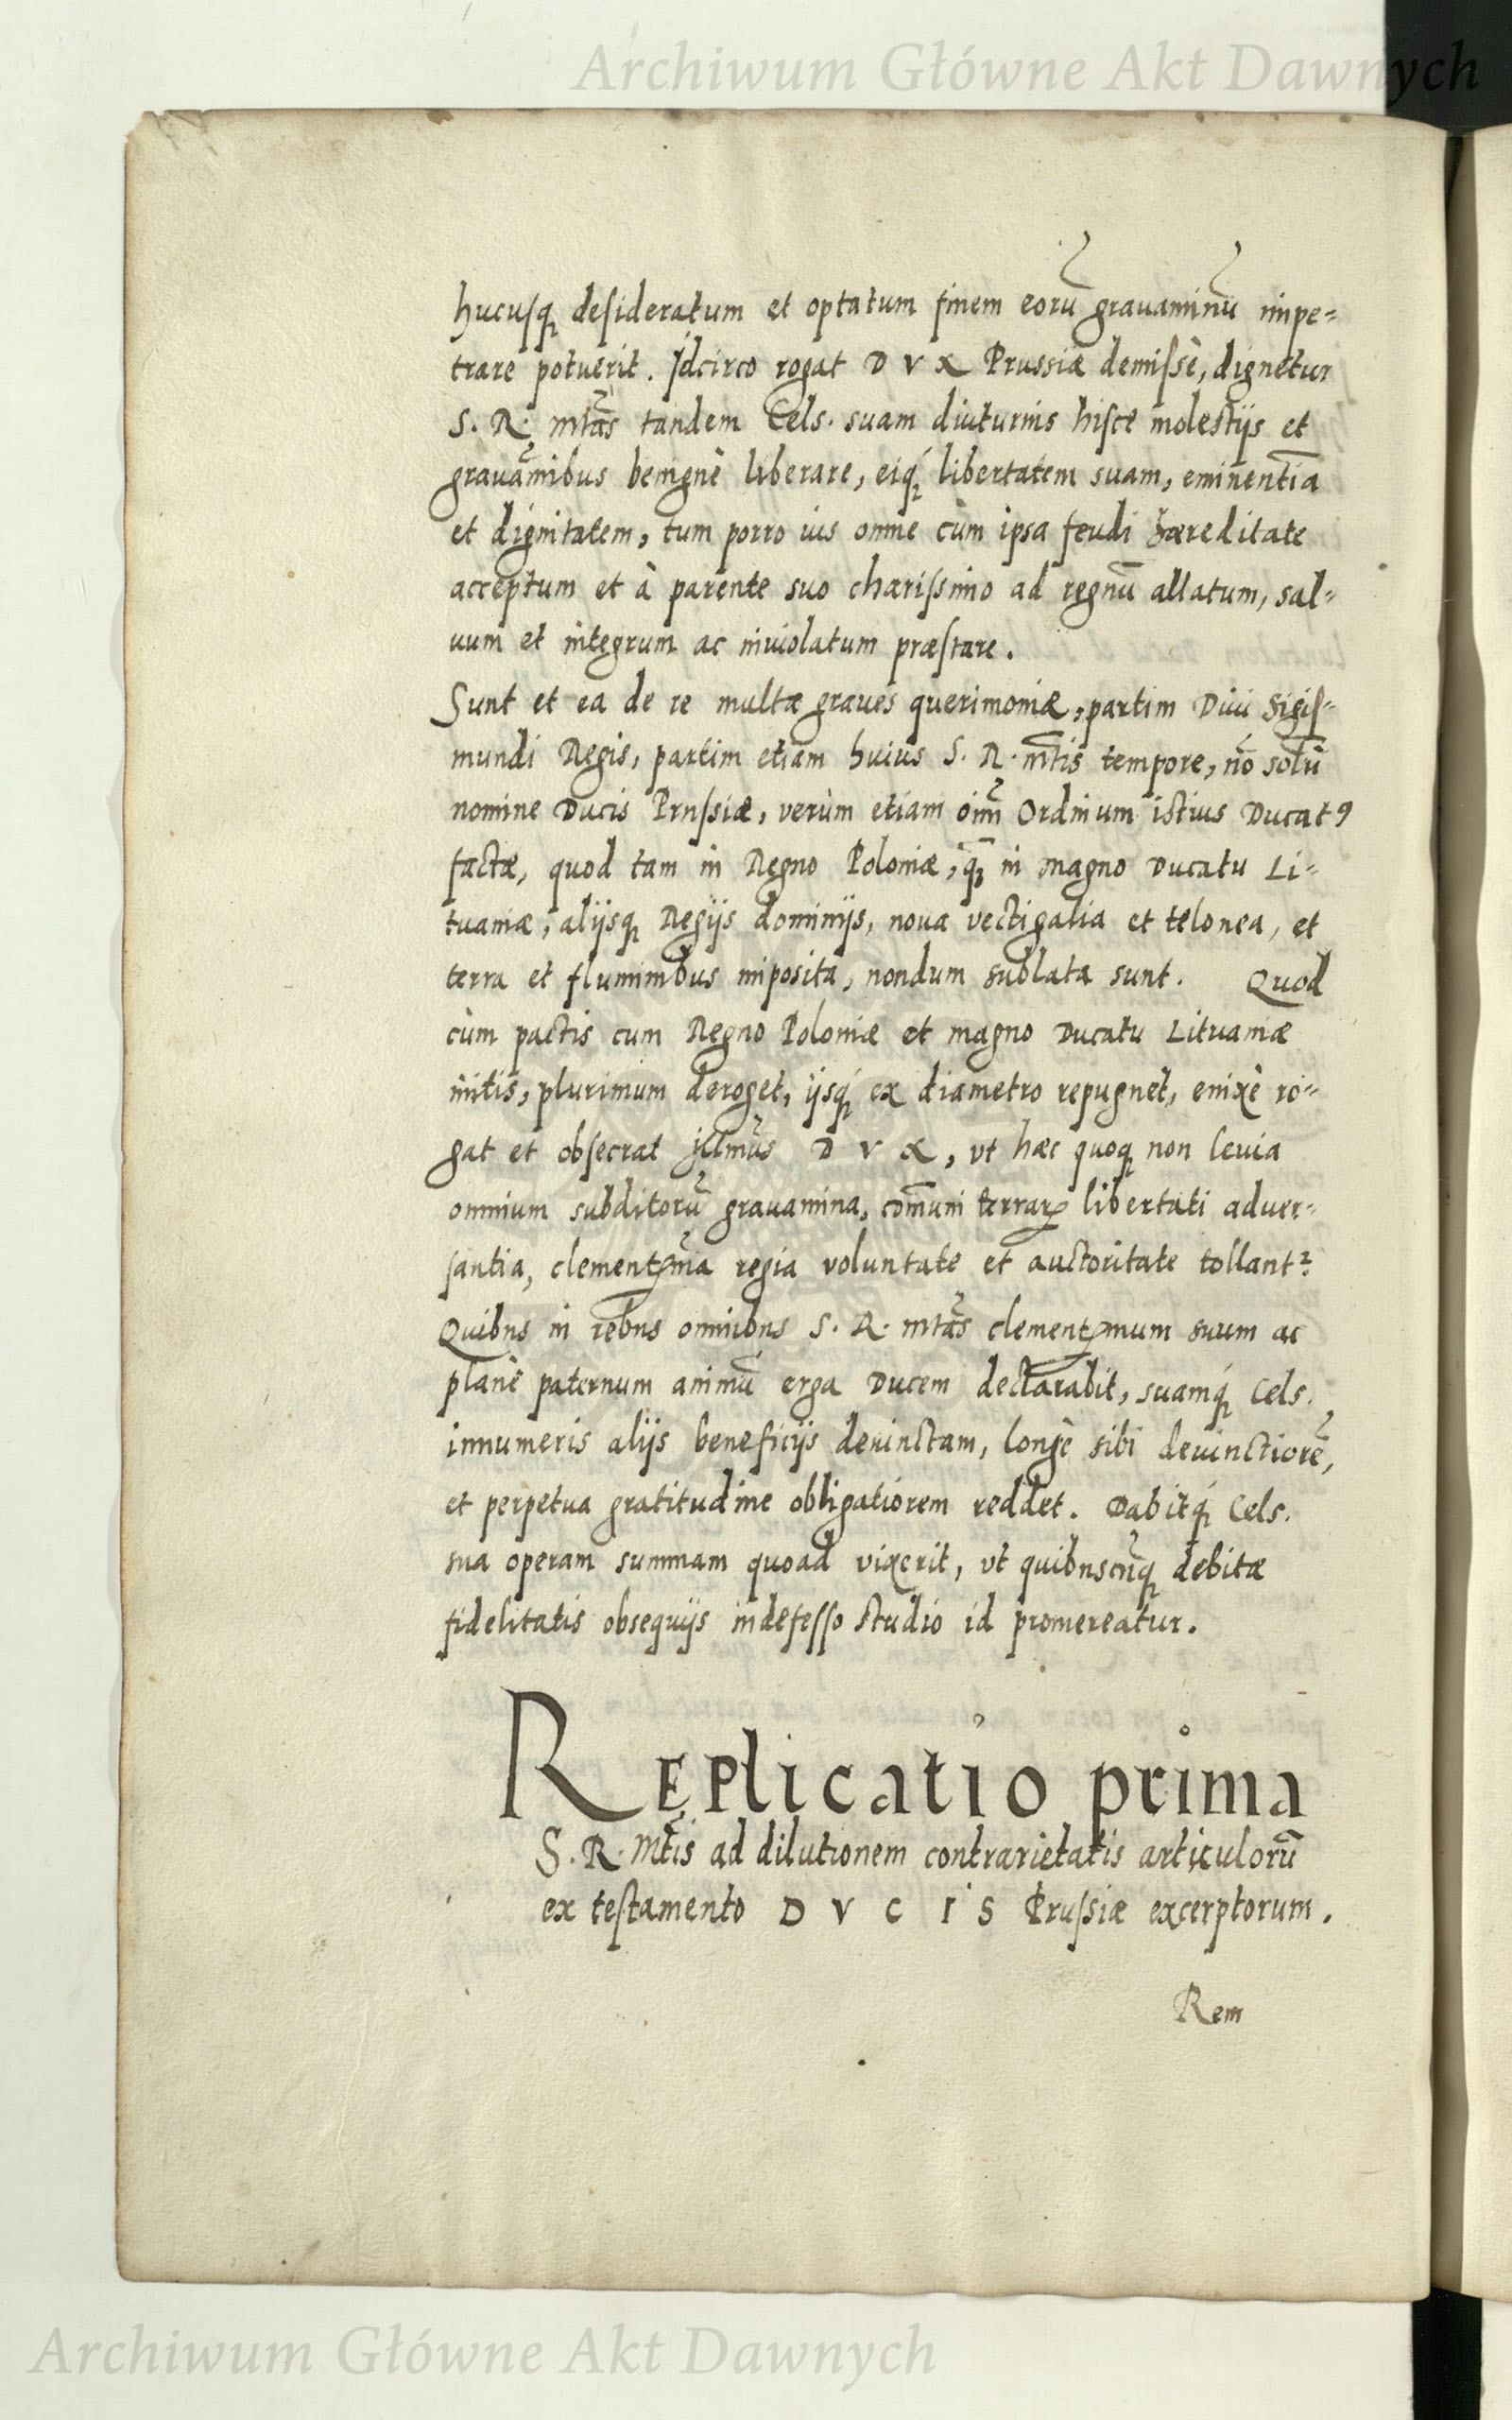 Archiwum Główne Akt Dawnych
hucusq₃ desideratum et optatum finem eorū grauaminū impe-
trare potuerit. Idcirco rogat D V X Prussiæ demissè, dignetur
S. R. Mtãs tandem Cels. suam diuturnis hisce molestijs et
grauãmibus benignè liberare, eiq́₃ libertatem suam, eminentiā
et dignitatem, tum porro ius omne cùm ipsa feudi hæreditate
acceptum et à parente suo charissimo ad regnū allatum, sal-
uum et integrum ac inuiolatum præstare.
Sunt et ea de re multæ graues querimoniæ, partim Diui Sigis-
mundi Regis, partim etiam huius S. R. Mtīs tempore, nō solū
nomine Ducis Prussiæ, verùm etiam oīm Ordinum istius Ducatꝰ
factæ, quod tam in Regno Poloniæ, q̄₃ in magno Ducatu Li-
tuaniæ, alijsq₃ Regijs dominijs, noua vectigalia et telonea, et
terra et fluminibus imposita, nondum sublata sunt. Quod
cùm pactis cum Regno Poloniæ et magno Ducatu Lituaniæ
initis, plurimum deroget, ijsq́₃ ex diametro repugnet, enixè ro-
gat et obsecrat Illmūs D V X, vt hæc quoq₃ non leuia
omnium subditorū grauamina, com̄uni terraꝝ libertati aduer-
santia, clementꝭma regia voluntate et auctoritate tollantᵣ.
Quibus in rebus omnibus S. R. Mtãs clementꝭmum suum ac
planè paternum animū erga Ducem declarabit, suamq́₃ Cels.
innumeris alijs beneficijs deuinctam, longè sibi deuinctiorē,
et perpetua gratitudine obligatiorem reddet. Dabitq́₃ Cels.
sua operam summam quoad vixerit, vt quibuscūq₃ debitæ
fidelitatis obsequijs indefesso studio id promereatur.
REPlicatio prima
S. R. Mtīs ad dilutionem contrarietatis articulorū
ex testamento D V C I S Prussiæ excerptorum.
Rem
Archiwum Główne Akt Dawnych